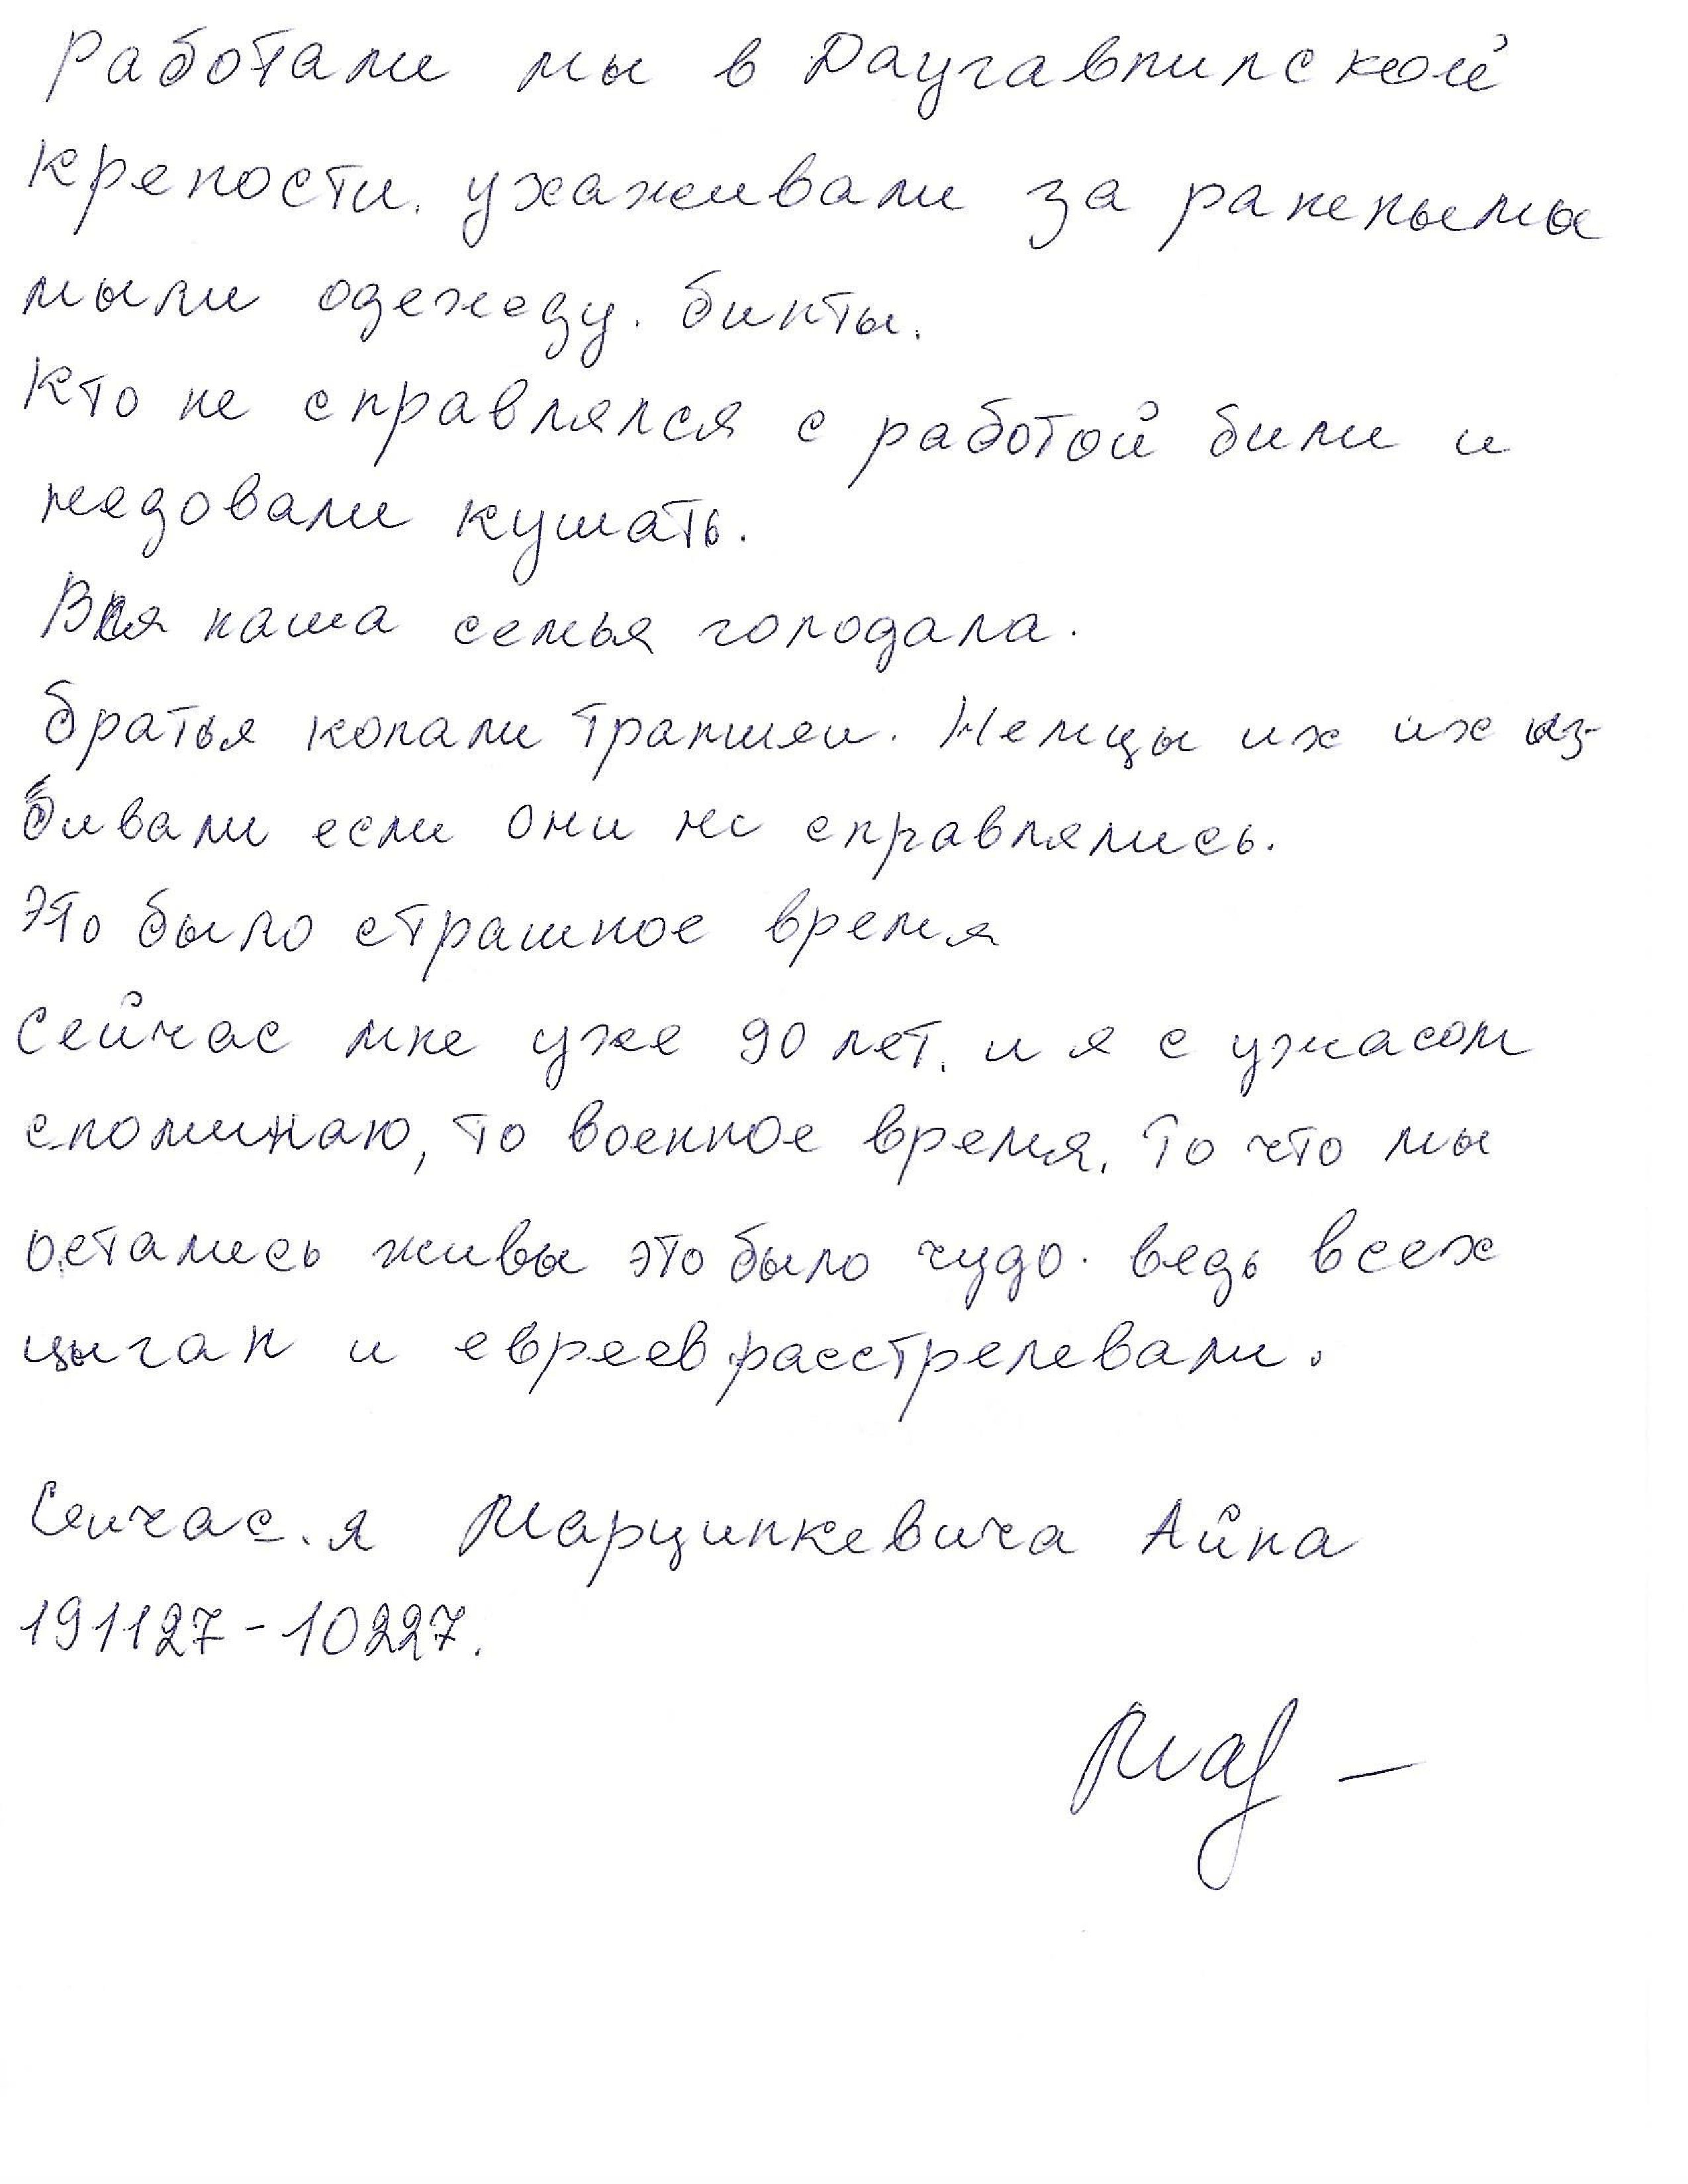 Работали мы в Даугавпилской
крепости. ухаживали за ранеными
мыли одежеду. бинты.
Кто не справлялся с работой били и
недовали кушать.
Вся наша семья голодала.
Братья копали траншеи. Немцы их их из-
бивали если они не справлялись.
Это было страшное время
Сейчас мне уже 90 лет. и я с ужасом
споминаю, то военное время. То что мы
остались живы это было чудо. ведь всех
цыган и евреев расстрелевали.
Сеичас. я Марцинкевича Айна
191127-10227.
Мар –